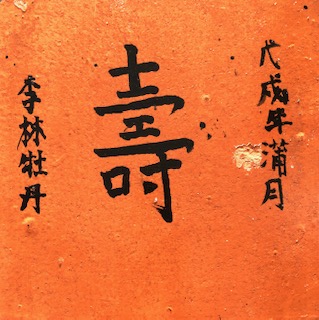 戊戌年蒲月
壽
李林牡丹